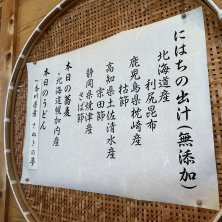 にはちの出汁(無添加)
北海道産
利尻昆布
鹿児島県枕崎産
枯節
高知県土佐清水産
宗田節
静岡県焼津産
さば節
本日の蕎麦
・北海道幌加内産
本日のうどん
・香川県産 さぬきの夢